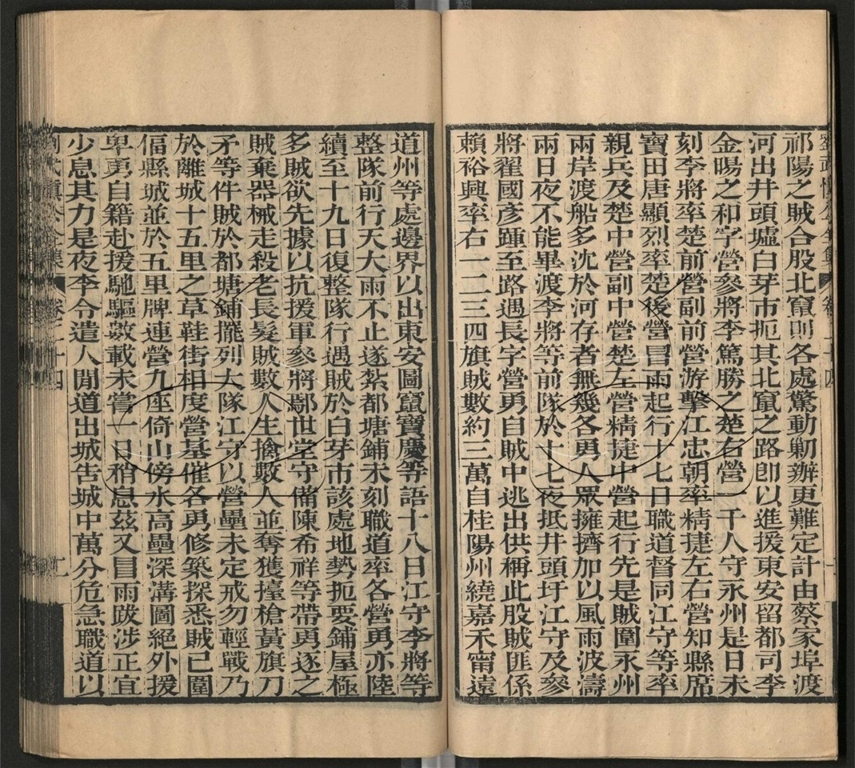 祁陽之賊合股北竄則各處驚動勦辦更難定計由蔡家埠渡
河出井頭墟白芽市扼其北竄之路卽以進援東安留都司李
金暘之和字營參將李篤勝之楚右營一千人守永州是日未
刻李將率楚前營副前營游擊江忠朝率精捷左右營知縣席
寶田唐顯烈率楚後營冒雨起行十七日職道督同江守等率
親兵及楚中營副中營楚左營精捷中營起行先是賊圍永州
兩岸渡船多沈於河存者無幾各勇人眾擁擠加以風雨波濤
兩日夜不能畢渡李將等前隊於十七夜抵井頭圩江守及參
將翟國彥踵至路遇長字營勇自賊中逃出供稱此股賊匪係
賴裕興率右一二三四旗賊數約三萬自桂陽州繞嘉禾甯遠
道州等處邊界以出東安圖竄寶慶等語十八日江守李將等
整隊前行天大雨不止遂紮都塘鋪未刻職道率各營勇亦陸
續至十九日復整隊行遇賊於白芽市該處地勢扼要鋪屋極
多賊欲先據以抗援軍參將鄢世堂守備陳希祥等帶勇逐之
賊棄器械走殺老長髮賊數人生擒數人並奪獲擡槍黃旗刀
矛等件賊於都塘鋪擺列大隊江守以營壘未定戒勿輕戰乃
於離城十五里之草鞋街相度營基催各勇修築探悉賊已圍
偪縣城並於五里牌連營九座倚山傍水高壘深溝圖絕外援
卑勇自籍赴援馳驅數載未嘗一日稍息茲又冒雨跋涉正宜
少息其力是夜李令遣人間道出城告城中萬分危急職道以
卷二十四